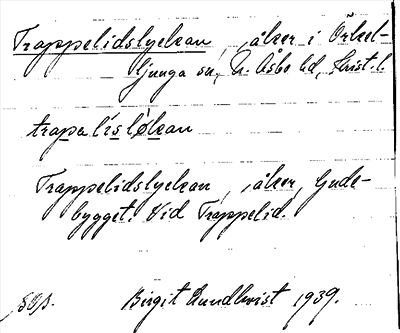 Trappelidslyckan, åker i Örkel-
ljunga sn, N. Åsbo hd, Krist. l.
trapalísløkan
Trappelidslyckan, åker, Gude-
bygget. Vid Trappelid.
Birgit Lundkvist 1939.